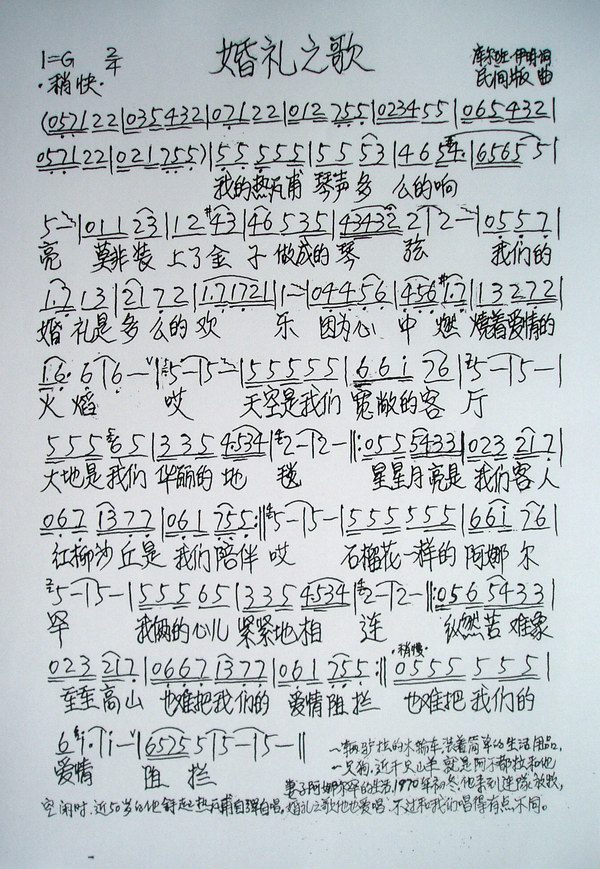 婚礼之歌
1=G 2/4
·稍快·
库尔班·伊明 词
民间版 曲
(057122|035432|07122|012 755|023455|065432|
057122|021755)|55 555|55 53|465 4·|65655|
我的热瓦甫 琴声多 么的响
5-|011 23|12 #43|46535|434322|2-|0557|
亮 莫非装 上了金 子 做成的 琴 弦 我们的
1·713|2172|1·71721|1-|04456|456 #1·7|13272|
婚 礼是多么的欢 乐 因为心 中 燃 烧着爱情的
1·6· 6|6-|5-|5-|55555|66i 76|5-|5-|
火 焰 哎 天空是我们 宽敞的客 厅
55565|335 4·534|2-|2-‖:055 5433|023 217|
大地是我们 华丽的 地 毯 星星月亮是 我们客人
067 1377|061 755:‖5-|5-|555555|66i 76|
红柳沙丘是 我们陪伴 哎 石榴花一样的 阿娜 尔
5-|5-|55565|335 4·534|2-|2-‖:056 5433|
罕 我俩的心儿 紧紧地相 连 纵然苦难象
023 217|0667 1377|061 755:‖0555 555|
·稍慢·
至至高山 也难把我们的 爱情阻拦 也难把 我们的
6 i·|i-|65255|5-|5-‖
爱情 阻 拦
一辆驴拉的木轮车,装着简单的生活用品,
一只狗,近千只山羊 就是阿不都拉和他
妻子阿娜尔罕的生活,1970年初冬他来到连队放牧,
空闲时,近50岁的他弹起热瓦甫自弹自唱,婚礼之歌他也爱唱。不过和我们唱得有点不同。